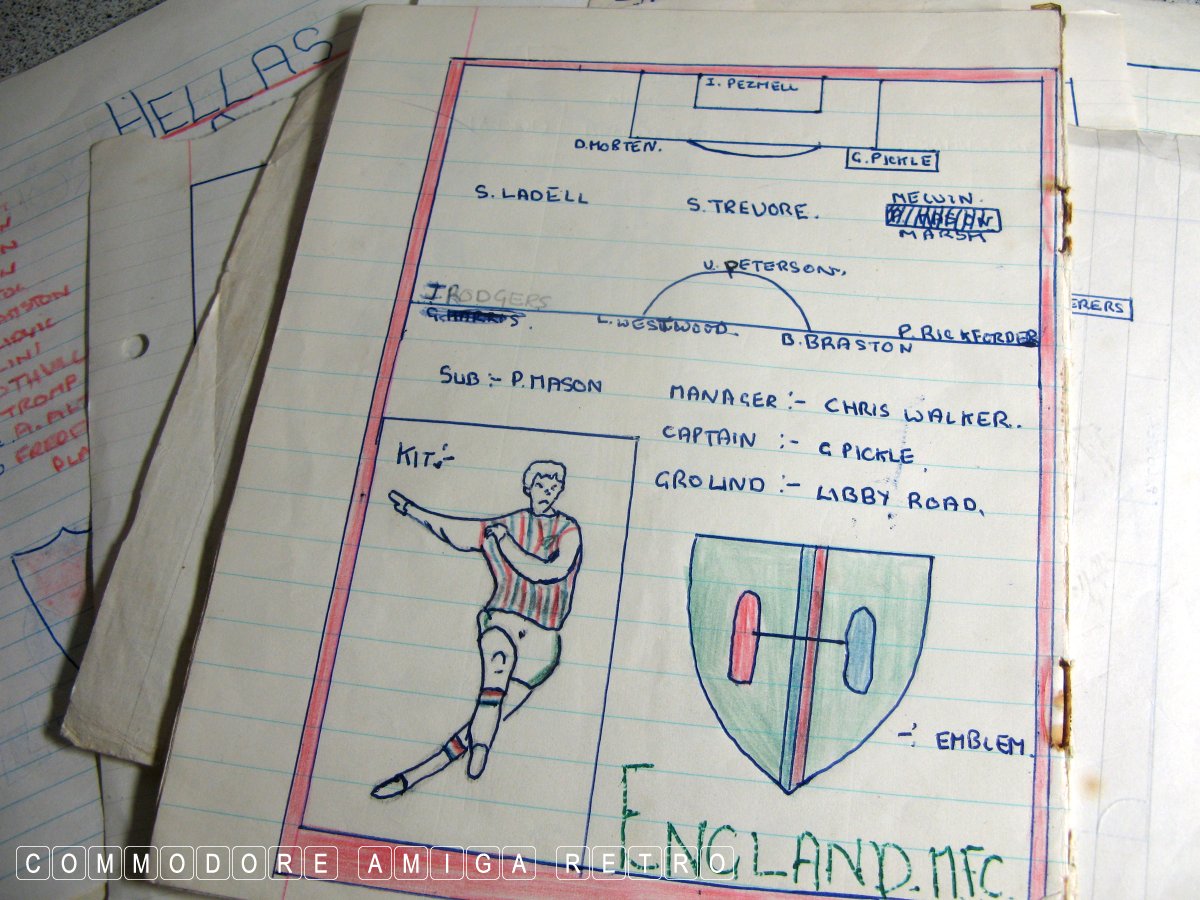 HELLAS
I. PEZMELL
D. MORTEN.
G. PICKLE
S. LADELL
S. TREVORE.
MELVIN
MARSH
V. PETERSON.
I RODGERS
G. HARRIS.
L. WESTWOOD.
B. BRASTON
P. RICKFORDER
ERERS
SUB :- P. MASON
MANAGER :- CHRIS WALKER.
CAPTAIN :- G PICKLE.
GROUND :- LIBBY ROAD.
KIT :-
TROMP
PLA
-: EMBLEM.
ENGLAND. M.F.C.
COMMODORE AMIGA RETRO